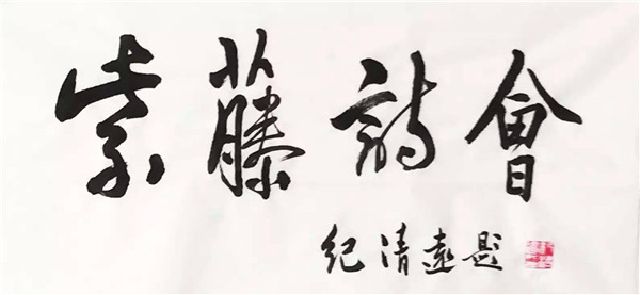 紫藤詩會
纪清远题